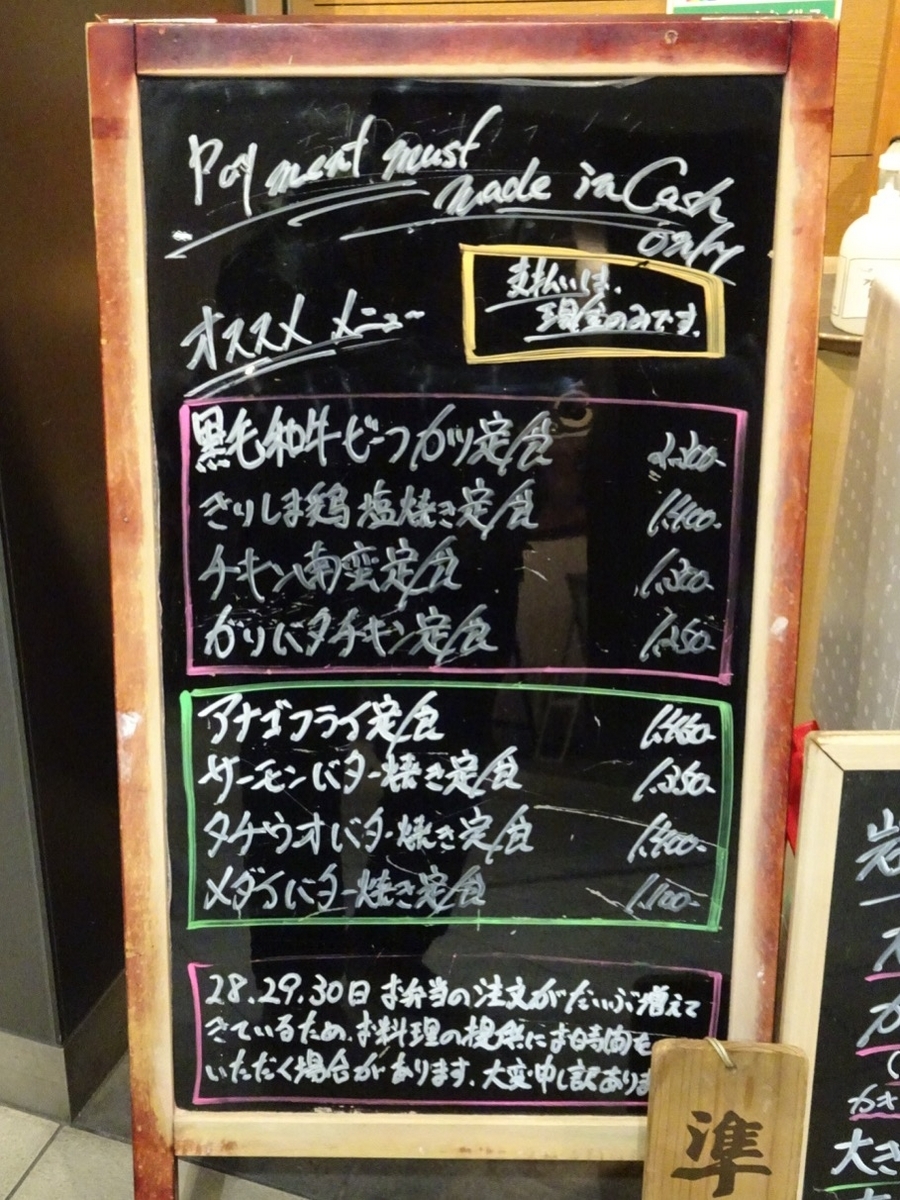 Payment must
made in Cash
only
支払いは、
現金のみです。
オススメ メニュー
黒毛和牛ビーフカツ定食 2,200-
きりしま鶏塩焼き定食 1,400-
チキン南蛮定食
がりバタチキン定食 1,250-
アナゴフライ定食 1,450-
サーモンバター焼き定食 1,350-
タチウオバター焼き定食 1,400-
メダイバター焼き定食 1,100-
28.29.30日 お弁当の注文がだいぶ増えて
きているため、お料理の提供にお時間も
いただく場合があります。大変申し訳ありま
準
岩
大き